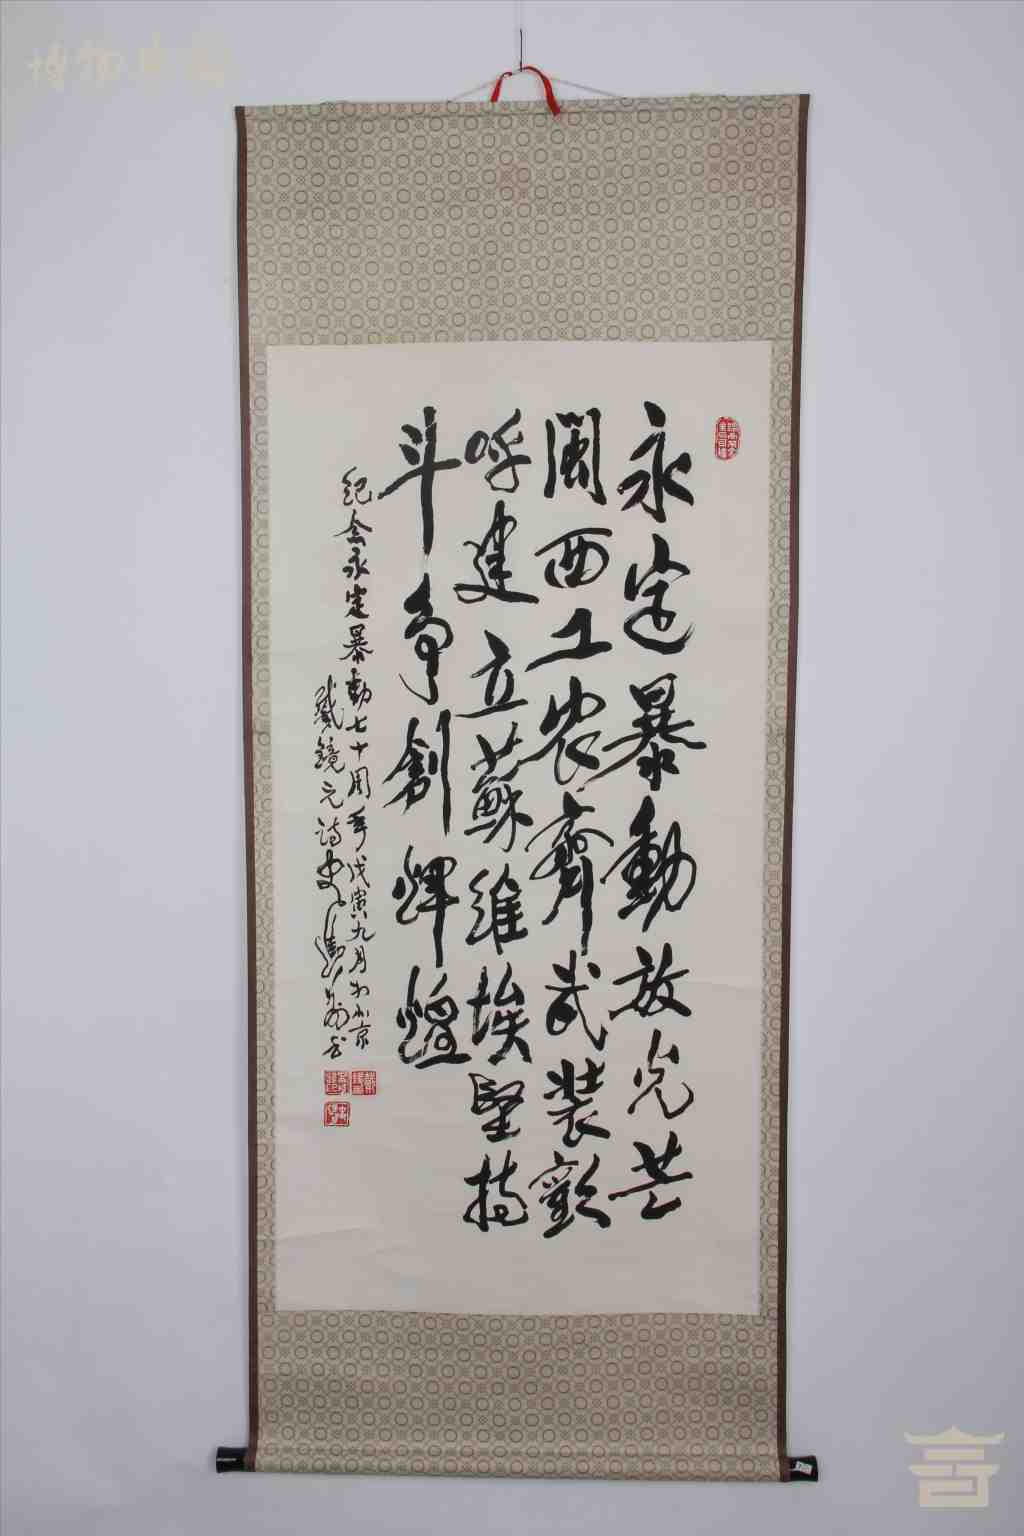 永定暴動放光芒
闽西工农齊武装歡
呼建立蘇维埃堅持
斗争創輝煌
纪念永定暴動七十周年戊寅九月於北京
戴鏡元诗
博物